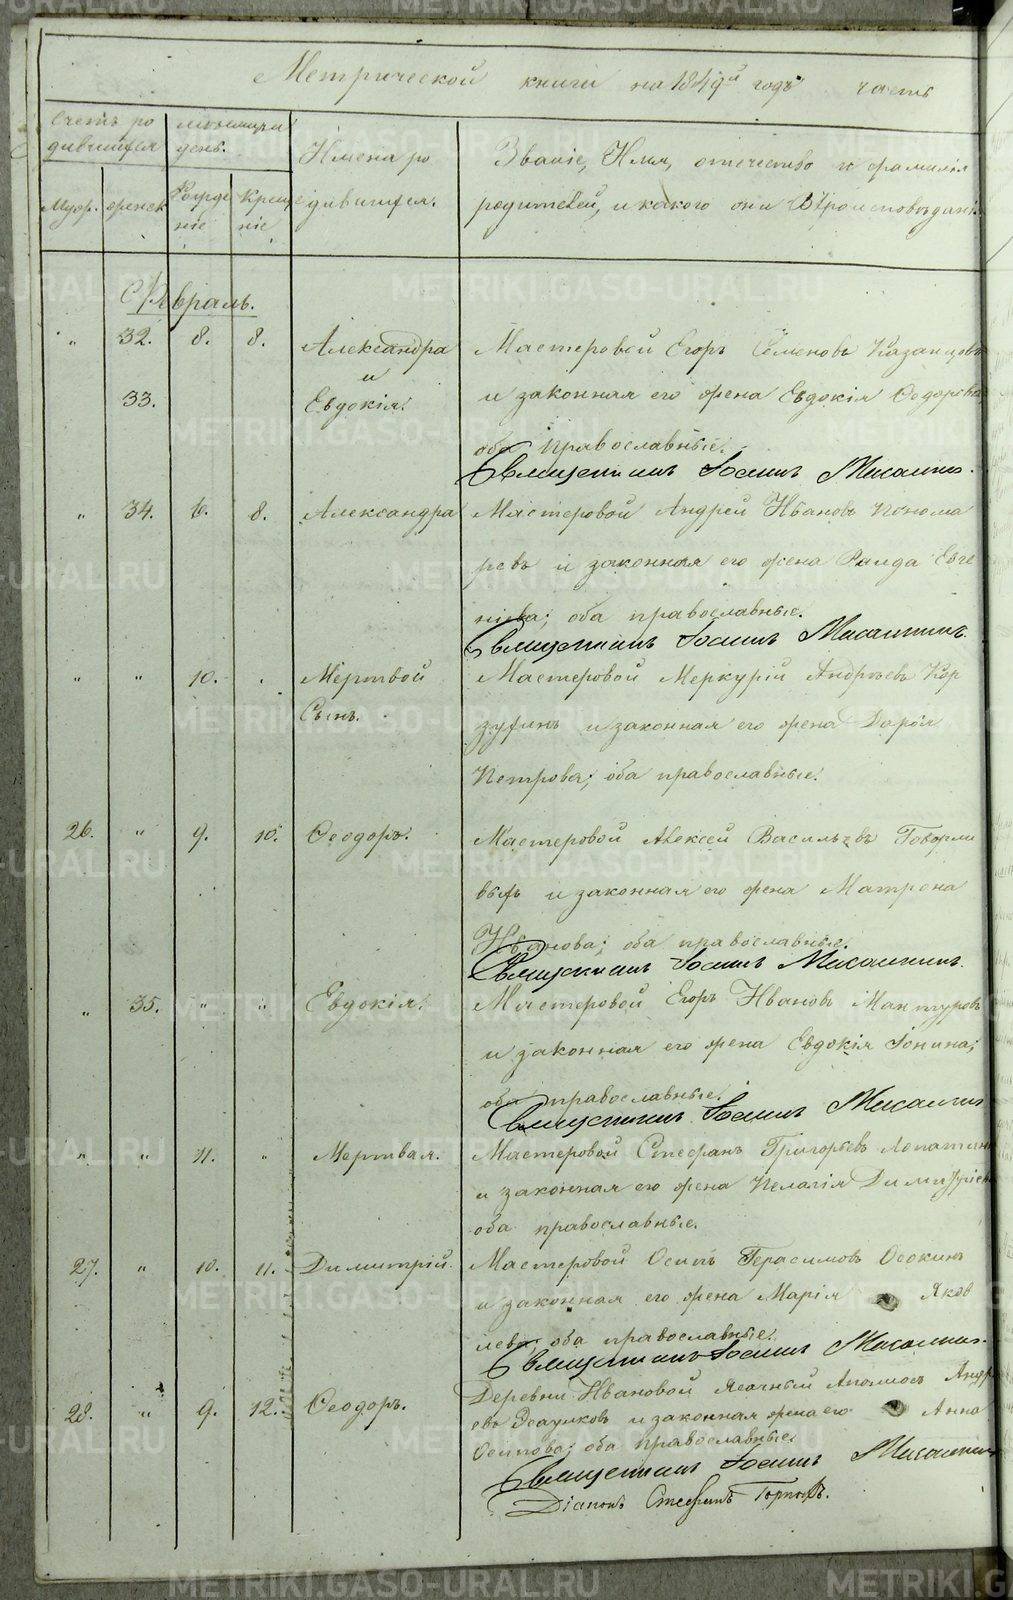 Метрической книги на 1849й годъ часть
Счетъ ро
дившихся
день.
Имена ро
дившихся.
Званіе, Имя, отечество и фамилія
родителей, и какого они Вѣроисповѣдані
женск
ніе
ніе
Февраль.
" 32. 8. 8. Александра Мастеровой Егоръ Семеновъ Казанцовъ
и
33. Евдокія. и законная его жена Евдокія Ѳедорова
оба православные.
Священникъ Іоаннъ
" 34. 6. 8. Александра Мастеровой Андрей Ивановъ Понома
ревъ и законная его жена Раида Евге
ніева; оба православные.
Священникъ Іоаннъ
" " 10. . Мертвой Мастеровой Меркурій Андреевъ Кор
Сынъ. зухинъ и законная его жена Дарья
Петрова; оба православные.
26. " 9. 10. Ѳеодоръ. Мастеровой Алексей Васильевъ Говорли
выхъ и законная его жена Матрона
Иванова; оба православные.
Священникъ Іоаннъ
" 35. " " Евдокія. Мастеровой Егоръ Ивановъ Мантуровъ
и законная его жена Евдокія Іонина;
оба православные.
Священникъ Іоаннъ
" " 11. " Мертвая. Мастеровой Стефанъ Григорьевъ Лопатинъ
и законная его жена Пелагія Димитріева
оба православные.
27. " 10. 11. Димитрій. Мастеровой Осипъ Герасимовъ Осокинъ
и законная его жена Марія Яков
лева, оба православные.
Священникъ Іоаннъ
28. " 9. 12. Ѳеодоръ. Деревни Ивановой Ясачный Андр
евъ и законная жена его Анна
Осипова; оба православные.
Священникъ Іоаннъ
Діаконъ Стефанъ
METRIKI.GASO-URAL.RU